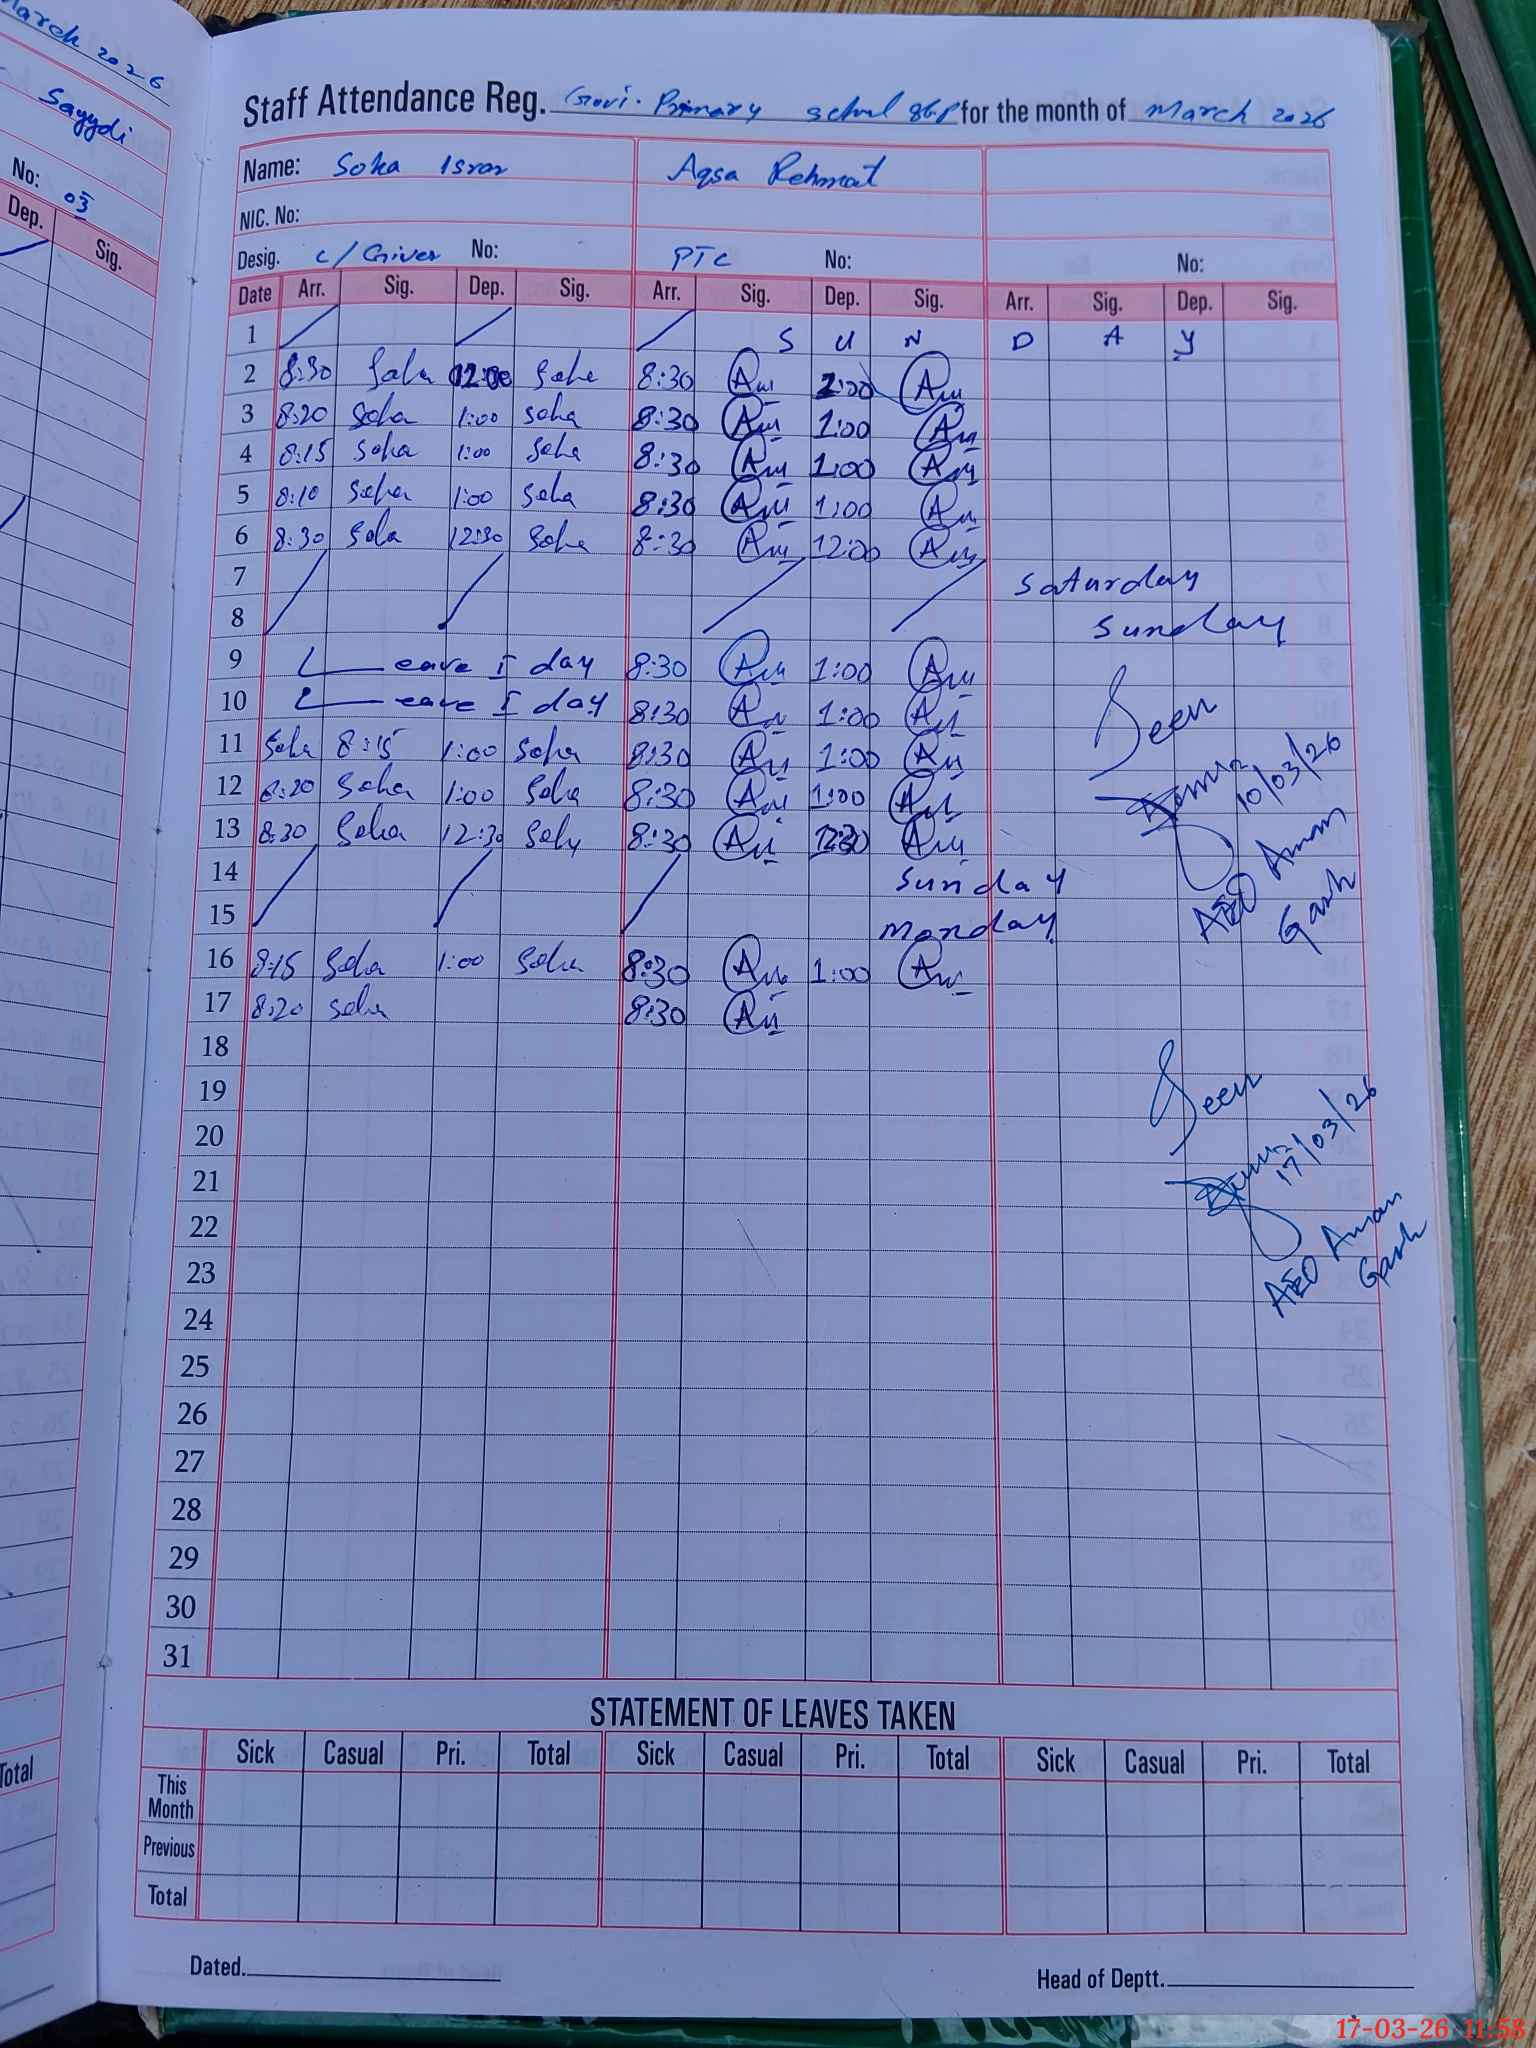 March 2026
Sayydi
No: 03
Dep. Sig.
Total
Staff Attendance Reg. Govt. Primary school for the month of March 2026
Name: Soha Israr Aqsa Rehmat
NIC. No:
Desig. C/Giver No: PTC No: No:
Date Arr. Sig. Dep. Sig. Arr. Sig. Dep. Sig. Arr. Sig. Dep. Sig.
1 S U N D A Y
2 8:30 Soha 12:00 Soha 8:30 :00
3 8:20 Soha 1:00 Soha 8:30 1:00
4 8:15 Soha 1:00 Soha 8:30 1:00
5 8:10 Soha 1:00 Soha 8:30 1:00
6 8:30 Soha 12:30 Soha 8:30 12:00
7 Saturday
8 Sunday
9 Leave I day 8:30 1:00
10 Leave I day 8:30 1:00
11 Soha 8:15 1:00 Soha 8:30 1:00
12 8:20 Soha 1:00 Soha 8:30 1:00
13 8:30 Soha 12:30 Soha 8:30
14 Sunday
15 Monday
16 8:15 Soha 1:00 Soha 8:30 1:00
17 8:20 Soha 8:30
Seen
10/03/26
AEO Aman
Garh
18
19
20
21
22
23
24
25
26
27
28
29
30
31
Seen
17/03/26
AEO Aman
Garh
STATEMENT OF LEAVES TAKEN
Sick Casual Pri. Total Sick Casual Pri. Total Sick Casual Pri. Total
This Month
Previous
Total
Dated. Head of Deptt.
17-03-26 11:58